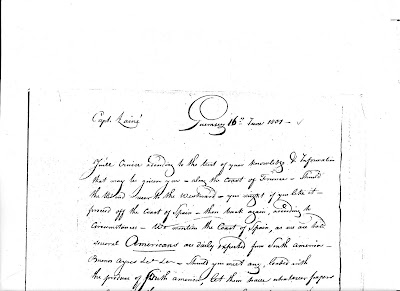 Capt. Lainé
Guernsey 16th June 1801 -
You'll Cruise according to the best of your Knowledge & Information
that may be given you - along the Coast of France - Should
the Wind veer to the Westward - you might if you like it -
proceed off the Coast of Spain - then back again, according to
Circumstances - We mention the Coast of Spain, as we are told
several Americans are daily expected from South America -
Buenos Ayres &c &c - Should you meet any, loaded with
the produce of South America, let them have whatever papers